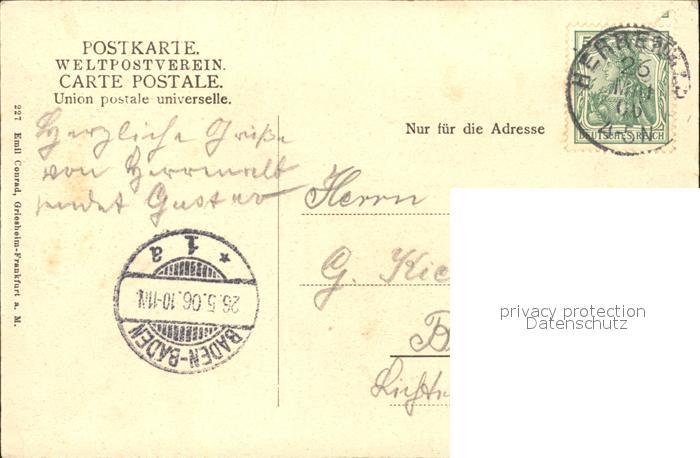 POSTKARTE.
WELTPOSTVEREIN.
CARTE POSTALE.
Union postale universelle.
Herzliche Grüße
von Herrenalb
sendet Gustav
227 Emil Conrad, Griesheim-Frankfurt a. M.
* 1 a
26.5.06.10-11V.
BADEN-BADEN
DEUTSCHES REICH
26
06
Nur für die Adresse
Herrn
G.
privacy protection
Datenschutz